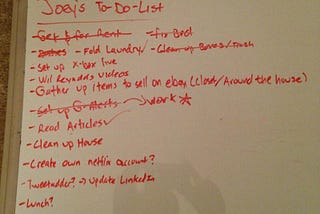 Joey's To-Do-List
- Get $ for Rent - fix Bed
- Dishes - Fold Laundry - Clean up Boxes/Trash
- Set up X-box live
- Wil Reynolds videos
- Gather up items to sell on ebay (Closet/Around the house)
- Set up G-Alerts → work
- Read Articles
- Clean up House
- Create own netflix account?
- Tweetadder? → update LinkedIn
- Lunch?